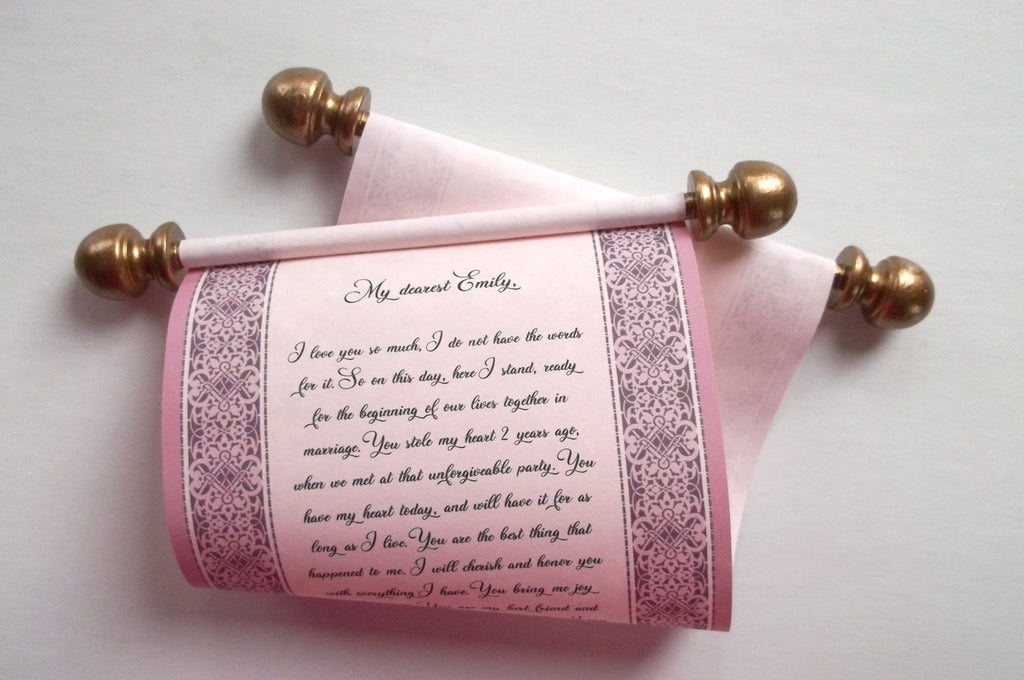 My dearest Emily,
I love you so much, I do not have the words
for it. So on this day, here I stand, ready
for the beginning of our lives together in
marriage. You stole my heart 2 years ago,
when we met at that unforgiveable party. You
have my heart today, and will have it for as
long as I live. You are the best thing that
happened to me. I will cherish and honor you
with everything I have. You bring me joy
You are my best friend and